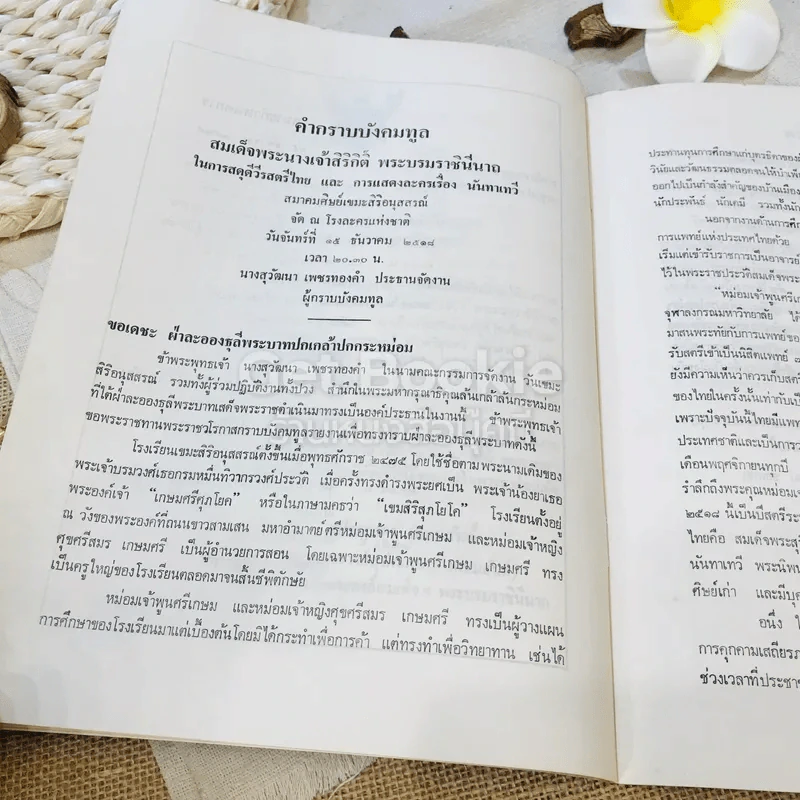 คำกราบบังคมทูล
สมเด็จพระนางเจ้าสิริกิติ์ พระบรมราชินีนาถ
ในการสดุดีวีรสตรีไทย และ การแสดงละครเรื่อง นันทาเทวี
สมาคมศิษย์เขมะสิริอนุสสรณ์
จัด ณ โรงละครแห่งชาติ
วันจันทร์ที่ ๑๕ ธันวาคม ๒๕๑๘
เวลา ๒๐.๓๐ น.
นางสุวัฒนา เพชรทองคำ ประธานจัดงาน
ผู้กราบบังคมทูล
ขอเดชะ ฝ่าละอองธุลีพระบาทปกเกล้าปกกระหม่อม
ข้าพระพุทธเจ้า นางสุวัฒนา เพชรทองคำ ในนามคณะกรรมการจัดงาน วันเขมะ
สิริอนุสสรณ์ รวมทั้งผู้ร่วมปฏิบัติงานทั้งปวง สำนึกในพระมหากรุณาธิคุณล้นเกล้าล้นกระหม่อม
ที่ใต้ฝ่าละอองธุลีพระบาทเสด็จพระราชดำเนินมาทรงเป็นองค์ประธานในงานนี้ ข้าพระพุทธเจ้า
ขอพระราชทานพระราชวโรกาสกราบบังคมทูลรายงานเพื่อทรงทราบฝ่าละอองธุลีพระบาทดังนี้
โรงเรียนเขมะสิริอนุสสรณ์ตั้งขึ้นเมื่อพุทธศักราช ๒๔๗๕ โดยใช้ชื่อตามพระนามเดิมของ
พระเจ้าบรมวงศ์เธอกรมหมื่นทิวากรวงศ์ประวัติ เมื่อครั้งทรงดำรงพระยศเป็น พระเจ้าน้องยาเธอ
พระองค์เจ้า "เกษมศรีศุภโยค" หรือในภาษามคธว่า "เขมสิริสุภโยโค" โรงเรียนตั้งอยู่
ณ วังของพระองค์ที่ถนนขาวสามเสน มหาอำมาตย์ตรีหม่อมเจ้าพูนศรีเกษม และหม่อมเจ้าหญิง
ศุขศรีสมร เกษมศรี เป็นผู้อำนวยการสอน โดยเฉพาะหม่อมเจ้าพูนศรีเกษม เกษมศรี ทรง
เป็นครูใหญ่ของโรงเรียนตลอดมาจนสิ้นชีพิตักษัย
หม่อมเจ้าพูนศรีเกษม และหม่อมเจ้าหญิงศุขศรีสมร เกษมศรี ทรงเป็นผู้วางแผน
การศึกษาของโรงเรียนมาแต่เบื้องต้นโดยมิได้กระทำเพื่อการค้า แต่ทรงทำเพื่อวิทยาทาน เช่นได้
ประทานทุนการศึกษาแก่บุตรธิดาของ
วินัยและวัฒนธรรมตลอดจนให้บำเพ็
ออกไปเป็นกำลังสำคัญของบ้านเมือง
นักประพันธ์ นักเคมี รวมทั้งนัก
นอกจากงานด้านการศึก
การแพทย์แห่งประเทศไทยด้วย
เริ่มแต่เข้ารับราชการเป็นอาจารย์
ไว้ในพระราชประวัติสมเด็จพระ
"หม่อมเจ้าพูนศรีเก
จุฬาลงกรณมหาวิทยาลัย ได้
มาสนพระทัยกับการแพทย์ของ
รับสตรีเข้าเป็นนิสิตแพทย์
ยังมีความเห็นว่าควรเก็บสตรี
ของไทยในครั้งนั้นเท่ากับเป็
เพราะปัจจุบันนี้ไทยมีแพทย
ประเทศชาติและเป็นการว
เดือนพฤศจิกายนทุกปี
รำลึกถึงพระคุณหม่อมเจ้
๒๕๑๘ นี้เป็นปีสตรีระ
ไทยคือ สมเด็จพระสุริ
นันทาเทวี พระนิพน
ศิษย์เก่า และมีบุค
อนึ่ง ใ
การคุกคามเสถียรภ
ช่วงเวลาที่ประชา
Get Bookie